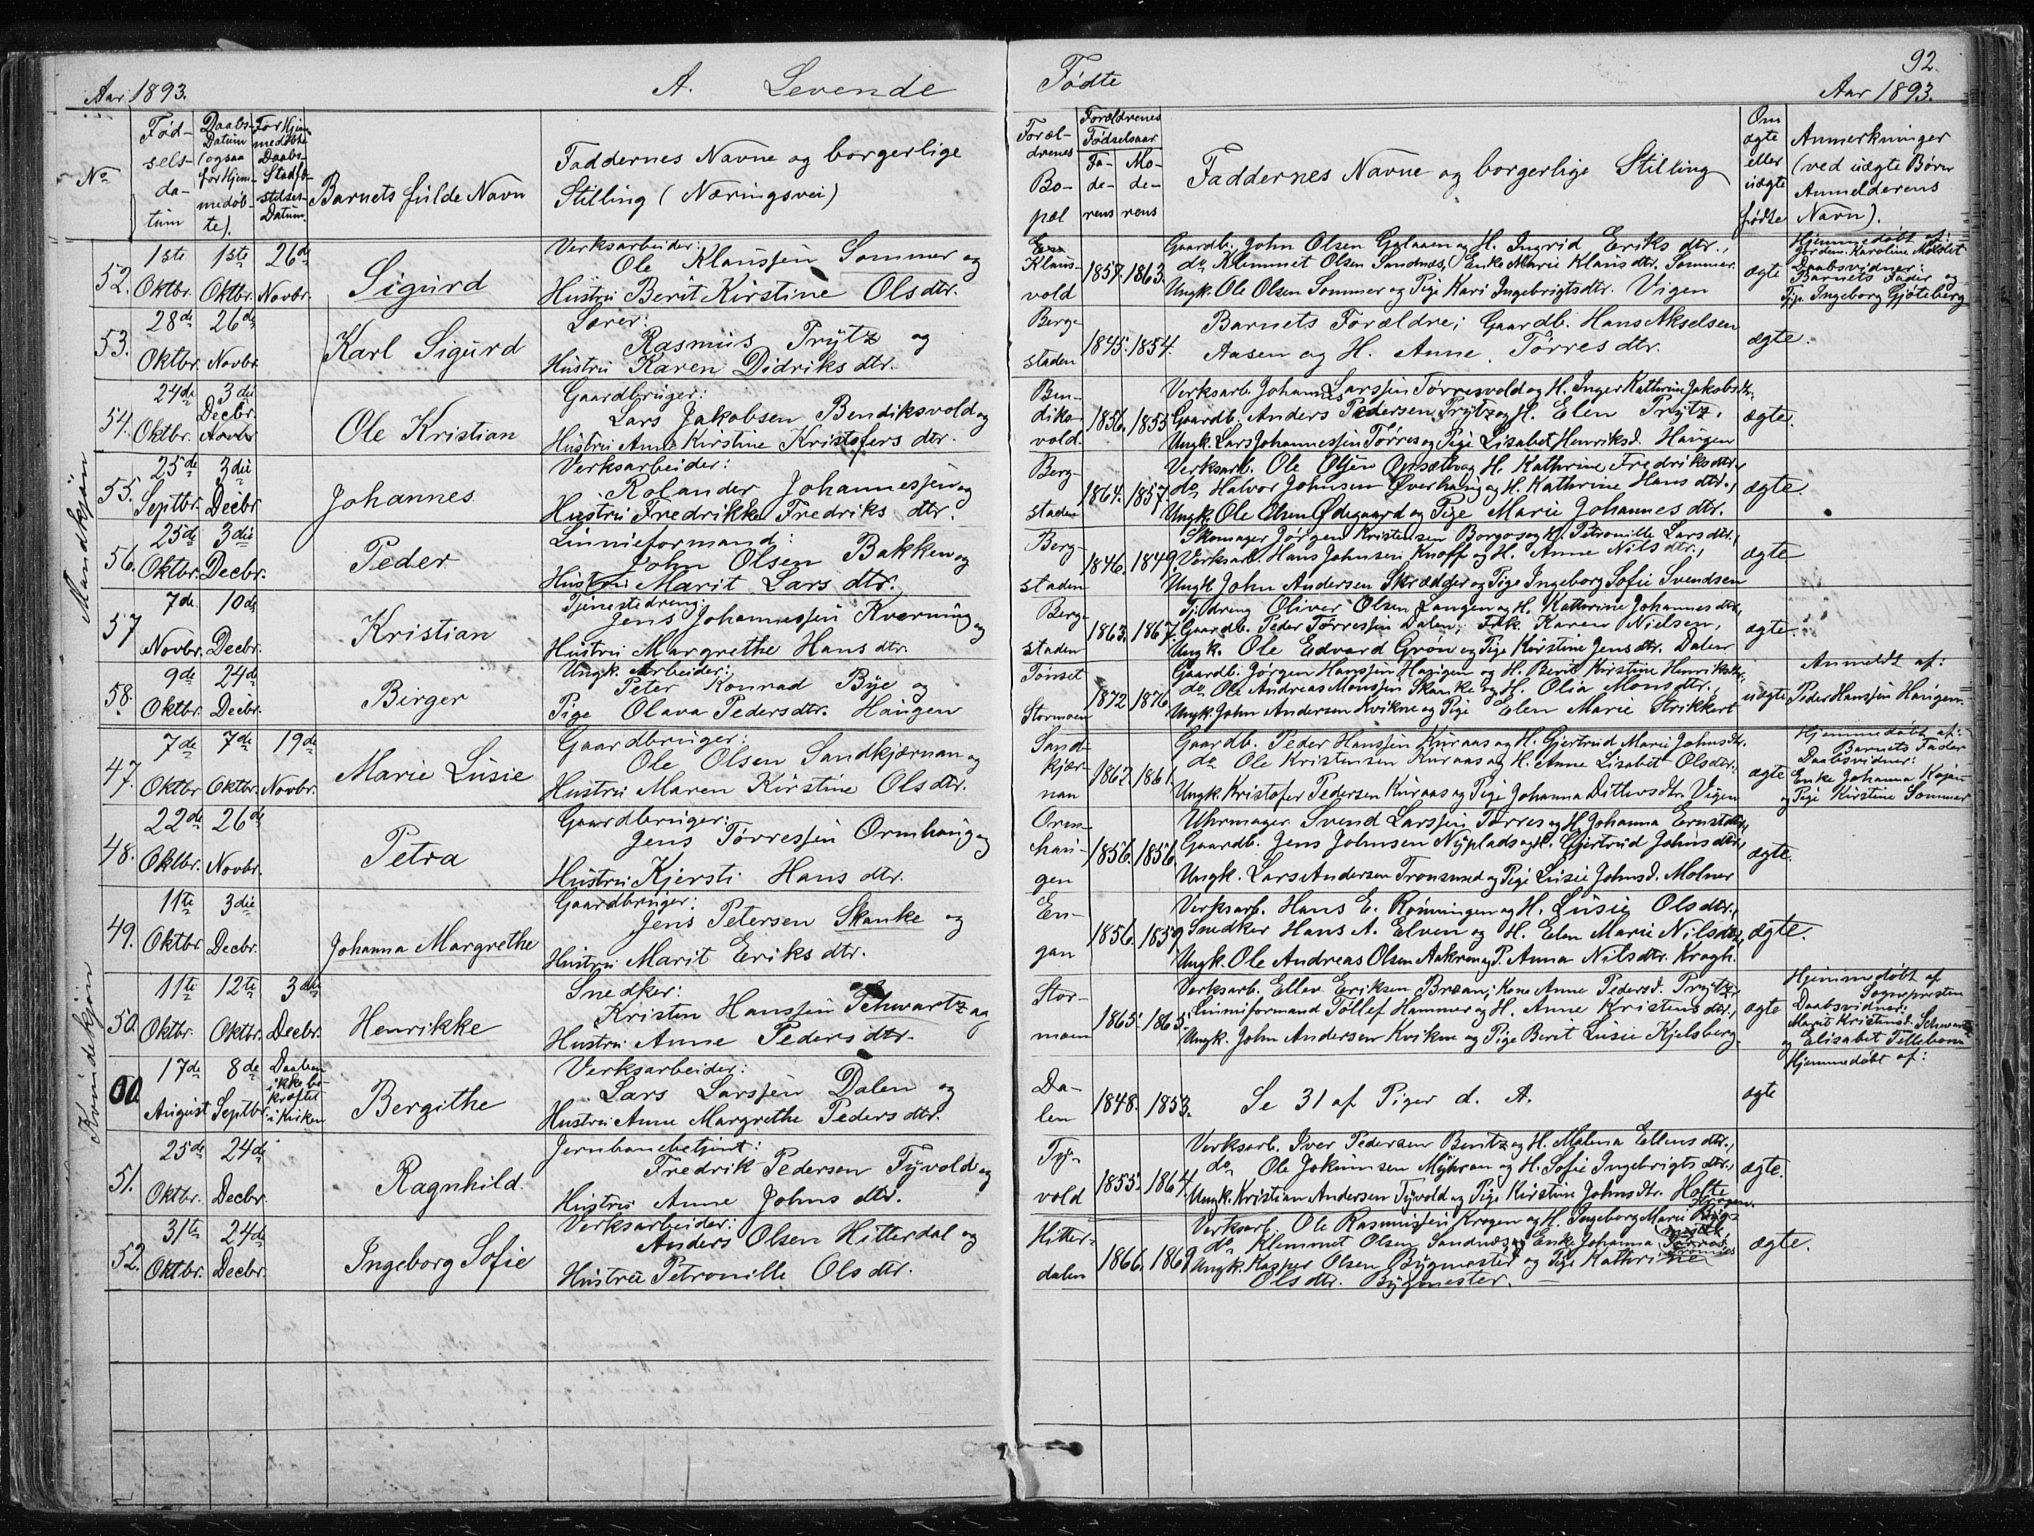 92.
Aar 1893. A. Levende Fødte Aar 1893.
No
Fød-
sels-
da-
tum
Daabs-
Datum
(ogsaa
for Hjem-
medøb-
te).
For Hjem-
medøbte
Daabs-
Stadfæ-
stelses-
Datum
Barnets fulde Navn
Faddernes Navne og borgerlige
Stilling (Næringsvei)
Foræl-
drenes
Bo-
pæl
Forældrenes
Fødselsaar
Fa-
de-
rens
Mo-
de-
rens
Faddernes Navne og borgerlige Stilling
Om
ægte
eller
uægte
fødte
Anmerkninger
(ved uægte Børn
Anmelderens
Navn).
Mandkjøn
52. 1ste Oktbr. 1ste Oktbr. 26de Novbr. Sigurd
Verksarbeider:
Ole Klaussen Sommer og
Hustru Berit Kirstine Olsdtr.
Klaus-
vold
1857. 1863.
Gaardb. John Olsen Galaaen og H. Ingrid Eriksdtr.,
do. Klemmet Olsen Sandnæs, Enke Marie Klausdtr. Sommer.
Ungk. Ole Olsen Sommer og Pige Kari Ingebrigtsdtr. Vigen
ægte
Hjemmedøbt af:
Jordem. Karoline Molset
Daabsvidner:
Barnets Fader og
Pige Ingeborg Gjøteberg
53. 28de Oktbr. 26de Novbr. Karl Sigurd
Lærer:
Rasmus Prytz og
Hustru Karen Didriksdtr.
Berg-
staden
1845. 1854.
Barnets Forældre; Gaardb. Hans Akselsen
Aasen og H. Anne Tørresdtr.
ægte.
54. 24de Oktbr. 3die Decbr. Novbr. Ole Kristian
Gaardbruger:
Lars Jakobsen Bendiksvold og
Hustru Anne Kirstine Kristofersdtr.
Ben-
diks-
vold.
1856. 1855
Verksarb. Johan Larssen Tørresvold og H. Inger Kathrine Jakobsdtr.,
Gaardb. Anders Pedersen Prytz og H. Elen Prytz,
Ungk. Lars Johannessen Tørres og Pige Lisabet Henriksd. Haugen
ægte.
55. 25de Septbr. 3die Decbr. Johannes
Verksarbeider:
Rolander Johannessen og
Hustru Fredrikke Fredriksdtr.
Berg-
staden
1864. 1857.
Verksarb. Ole Olsen Opsætt og H. Kathrine Fredriksdtr.,
do. Halvor Johnsen Øverhaug og H. Kathrine Hansdtr.,
Ungk. Ole Olsen Ødegaard og Pige Marie Johannesdtr.
ægte.
56. 25de Oktbr. 3die Decbr. Peder
Linnieformand:
John Olsen Bakken og
Hustru Marit Larsdtr.
Berg-
staden
1846. 1849.
Skomager Jørgen Kristensen Borgos og H. Petronille Larsdtr.,
Verksarb. Hans Johnsen Knoff og H. Anne Nilsdtr.,
Ungk. John Andersen Skrædder og Pige Ingeborg Sofie Svendsen
ægte
57 7de Novbr. 10de Decbr. Kristian
Tjenestedreng:
Jens Johannessen Kverning og
Hustru Margrethe Hansdtr.
Berg-
staden
1863. 1867.
Tj. Dreng Oliver Olsen Langen og H. Kathrine Johannesdtr.,
Gaardb. Peder Tørressen Dalen, Frk. Karen Nielsen,
Ungk. Ole Edvard Grøn og Pige Kirstine Jensdtr. Dalen
ægte.
58. 9de Oktbr. 24de Decbr. Birger
Ungk. Arbeider:
Peter Konrad Bye og
Pige Olava Pedersdtr. Haugen
Tønset
Stormoen
1872 1876
Gaardb. Jørgen Hanssen Haugen og H. Berit Kirstine Henriksdtr.,
do. Ole Andreas Monssen Skanke og H. Olia Monsdtr.,
Ungk. John Andersen Kvikne og Pige Elen Marie Strikkert
uægte
Anmeldt af:
Peder Hanssen Haugen.
Kvindekjøn
47. 7de Oktbr. 7de Oktbr. 19de Novbr. Marie Lusie
Gaardbruger:
Ole Olsen Sandkjærnan og
Hustru Maren Kirstine Olsdtr.
Sand-
kjær-
nan
1862. 1861.
Gaardb. Peder Hanssen Kuraas og H. Gjertrud Marie Johnsdtr.
do. Ole Kristensen Kuraas og H. Anne Lisabet Olsdtr.
Ungk. Kristofer Pedersen Kuraas og Pige Johanna Ditlevsdtr. Vigen
ægte
Hjemmedøbt af:
Barnets Fader
Daabsvidner:
Enke Johanna Kojan
og Pige Kirstine Sommer
48. 22de Oktbr. 26de Novbr. Petra
Gaardbruger:
Jens Tørressen Ormhaug og
Hustru Kjersti Hansdtr.
Orm-
hau-
gen
1856. 1856.
Uhrmager Svend Larssen Tørres og H. Johanna Ernstdtr.,
Gaardb. Jens Johnsen Nyplads og H. Gjertrud Johnsdtr.,
Ungk. Lars Andersen Tronsmed og Pige Lusie Johnsd. Molner
ægte.
49. 11te Oktbr. 3die Decbr. Johanna Margrethe
Gaardbruger:
Jens Petersen Skanke og
Hustru Marit Eriksdtr.
En-
gan
1856. 1859
Verksarb. Hans E. Rønningen og H. Lusie Olsdtr.,
Snedker Hans A. Elven og H. Elen Marie Nilsdtr.,
Ungk. Ole Andreas Olsen Aakren og P. Anna Nilsdtr. Kragh.
ægte.
50. 11te Oktbr. 12te Oktbr. 3die Decbr. Henrikke
Snedker:
Kristen Hanssen Schwartz og
Hustru Anne Pedersdtr.
Stor-
moen
1865. 1865.
Verksarb. Ellev Eriksen Braan; Kone Anne Pedersd. Prytz,
Linnieformand Tollef Hammer og H. Anne Kristensdtr.,
Ungk. John Andersen Kvikne og Pige Berit Lusie Kjelsberg.
ægte
Hjemmedøbt af
Sognepresten
Daabsvidner:
Marit Kristensd. Schwartz
og Elisabet Tillebom
00. 17de August 8de Septbr. Daaben
ikke be-
kræftet
i Kirken Bergithe
Verksarbeider:
Lars Larssen Dalen og
Hustru Anne Margrethe Pedersdtr.
Da-
len
1848. 1853.
Se 31 af Piger d. A.
ægte
Hjemmedøbt af:
51. 25de Oktbr. 24de Decbr. Ragnhild.
Jernbanebetjent:
Fredrik Pedersen Tyvold og
Hustru Anne Johnsdtr.
Ty-
vold
1855. 1864.
Verksarb. Iver Pedersen Bentz og H. Malena Ellensdtr.,
do. Ole Jokumsen Myhran og H. Sofie Ingebrigtsdtr.,
Ungk. Kristian Andersen Tyvold og Pige Kirstine Johnsdtr. Hofte
ægte.
52. 31te Oktbr. 24de Decbr. Ingeborg Sofie
Verksarbeider:
Anders Olsen Hitterdal og
Hustru Petronille Olsdtr.
Hitter-
dalen
1866. 1869
Verksarb. Ole Rasmussen Krogen og H. Ingeborg Marie Krogen,
do. Klemmet Olsen Sandnæs og Enke Johanna
Ungk. Kasper Olsen Bygmester og Pige Kathrine
Olsdtr. Bygmester.
ægte.